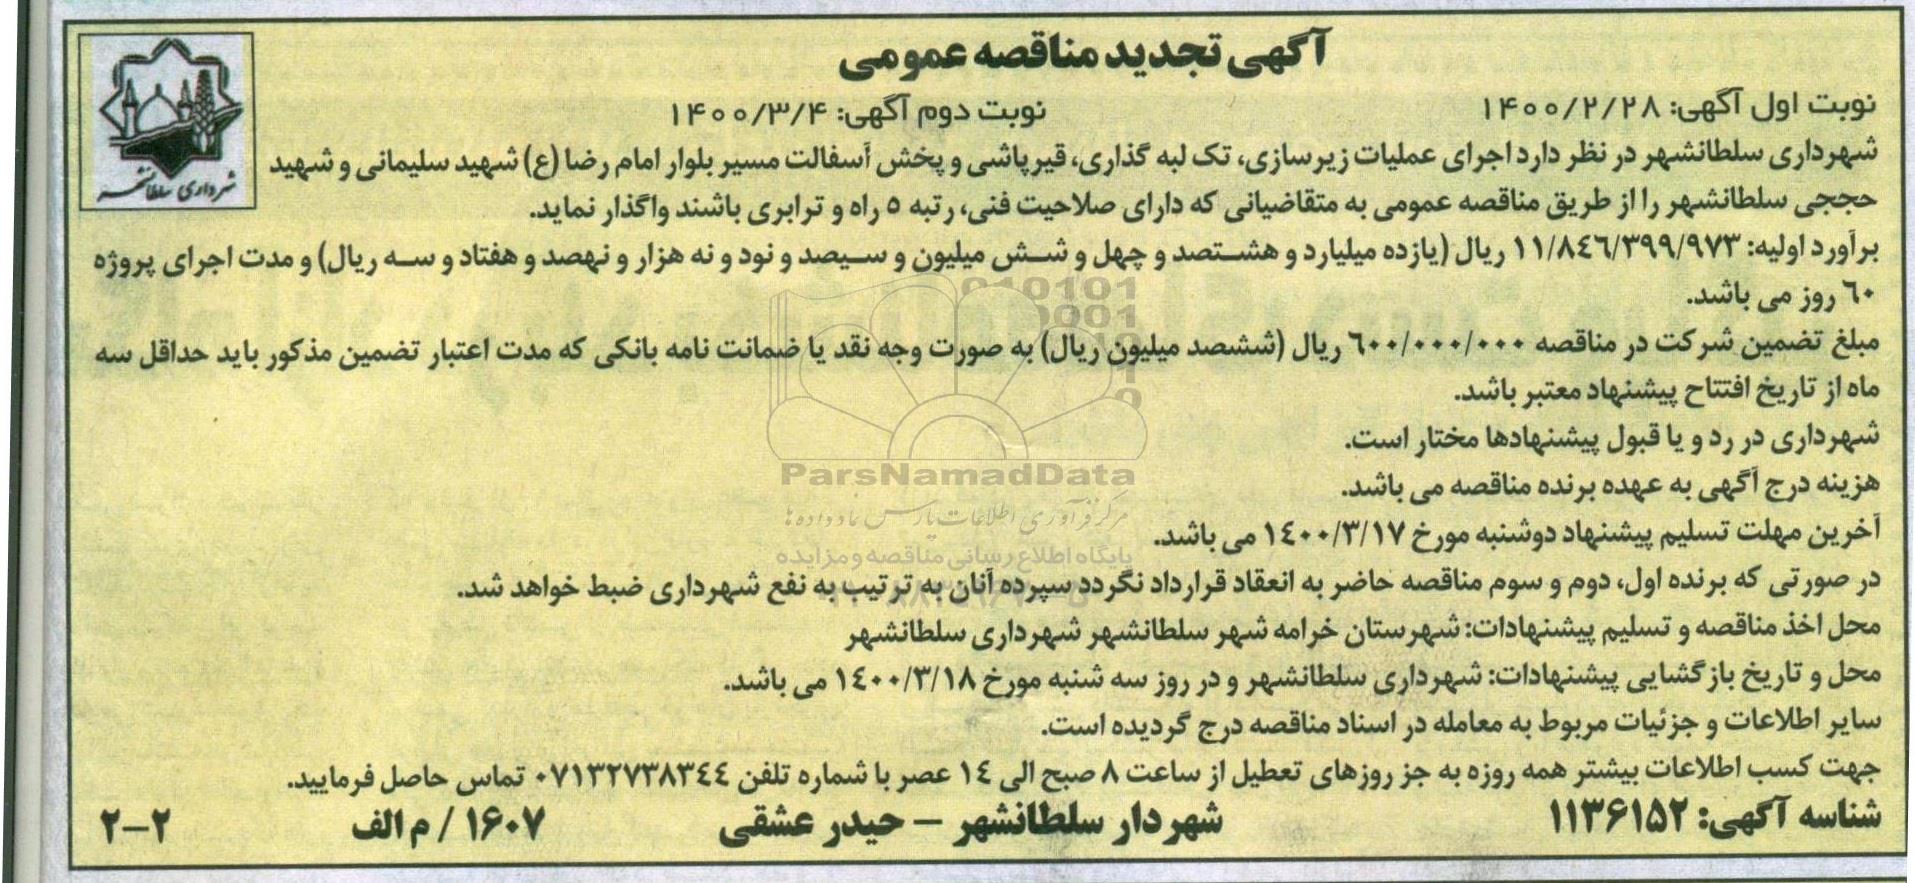 آگهی تجدید مناقصه عمومی
نوبت اول آگهی: ۱۴۰۰/۲/۲۸
نوبت دوم آگهی: ۱۴۰۰/۳/۴
شهرداری سلطانشهر
شهرداری سلطانشهر در نظر دارد اجرای عملیات زیرسازی، تک لبه گذاری، قیرپاشی و پخش آسفالت مسیر بلوار امام رضا (ع) شهید سلیمانی و شهید
حججی سلطانشهر را از طریق مناقصه عمومی به متقاضیانی که دارای صلاحیت فنی، رتبه ۵ راه و ترابری باشند واگذار نماید.
برآورد اولیه: ۱۱/۸۴۶/۳۹۹/۹۷۳ ریال (یازده میلیارد و هشتصد و چهل و شش میلیون و سیصد و نود و نه هزار و نهصد و هفتاد و سه ریال) و مدت اجرای پروژه
۶۰ روز می باشد.
مبلغ تضمین شرکت در مناقصه ۶۰۰/۰۰۰/۰۰۰ ریال (ششصد میلیون ریال) به صورت وجه نقد یا ضمانت نامه بانکی که مدت اعتبار تضمین مذکور باید حداقل سه
ماه از تاریخ افتتاح پیشنهاد معتبر باشد.
شهرداری در رد و یا قبول پیشنهادها مختار است.
هزینه درج آگهی به عهده برنده مناقصه می باشد.
آخرین مهلت تسلیم پیشنهاد دوشنبه مورخ ۱۴۰۰/۳/۱۷ می باشد.
در صورتی که برنده اول، دوم و سوم مناقصه حاضر به انعقاد قرارداد نگردد سپرده آنان به ترتیب به نفع شهرداری ضبط خواهد شد.
محل اخذ مناقصه و تسلیم پیشنهادات: شهرستان خرامه شهر سلطانشهر شهرداری سلطانشهر
محل و تاریخ بازگشایی پیشنهادات: شهرداری سلطانشهر و در روز سه شنبه مورخ ۱۴۰۰/۳/۱۸ می باشد.
سایر اطلاعات و جزئیات مربوط به معامله در اسناد مناقصه درج گردیده است.
جهت کسب اطلاعات بیشتر همه روزه به جز روزهای تعطیل از ساعت ۸ صبح الی ۱۴ عصر با شماره تلفن ۰۷۱۳۲۷۳۸۳۴۴ تماس حاصل فرمایید.
شناسه آگهی: ۱۱۳۶۱۵۲
شهردار سلطانشهر – حیدر عشقی
۱۶۰۷ / م الف
۲–۲
ParsNamadData
مرکز فرآوری اطلاعات پارس نماد داده ها
پایگاه اطلاع رسانی مناقصه و مزایده